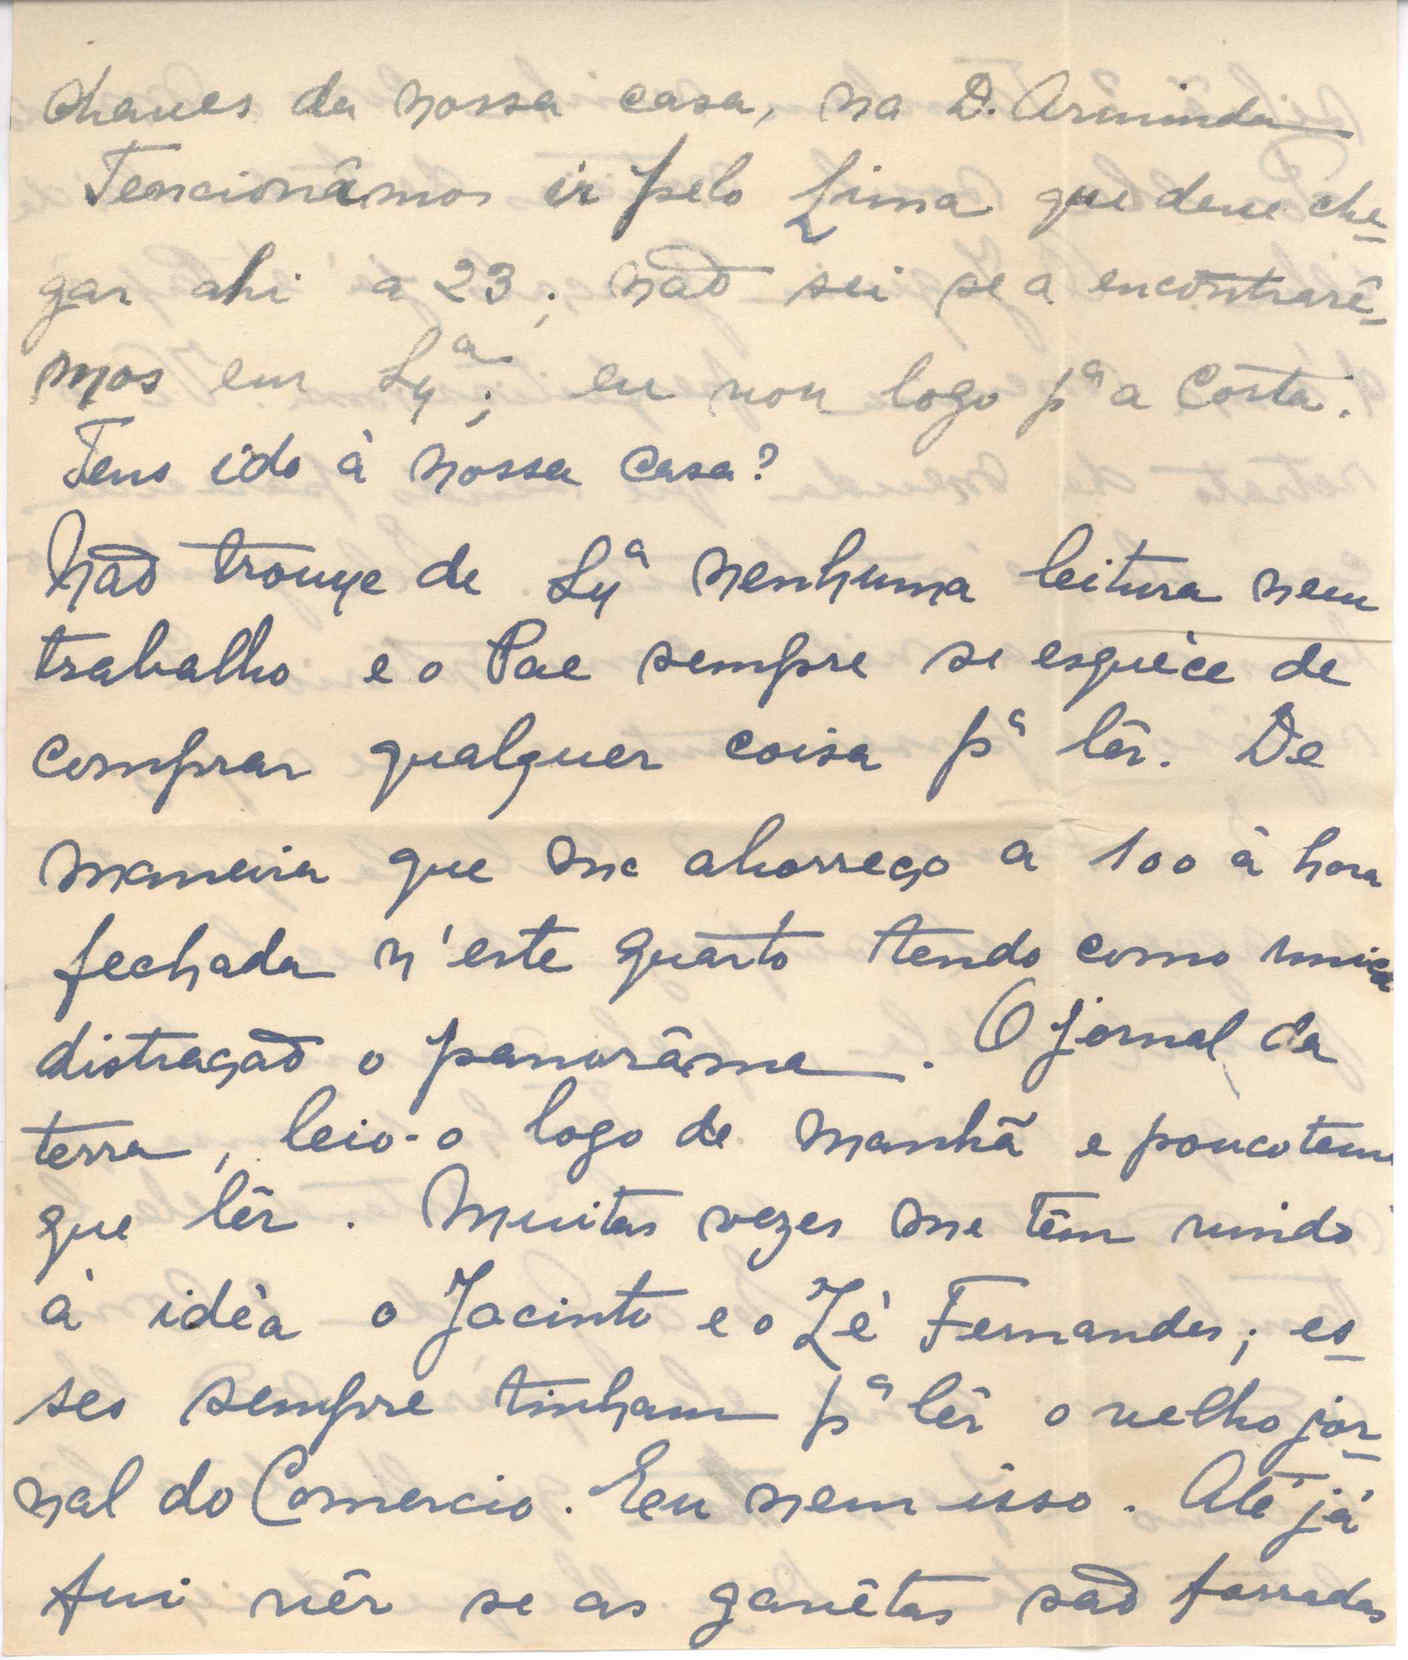 chaves da nossa casa, na D. Arminda
Tencionâmos ir pelo Lima que deve che-
gar ahi a 23; não sei se a encontrarê-
mos em Lxª; eu vou logo pª a Costa.
Tens ido à nossa casa?
Não trouxe de Lxª nenhuma leitura nem
trabalho e o Pae sempre se esquéce de
comprar qualquer coisa pª lêr. De
maneira que me aborreço a 100 à hora
fechada n'este quarto tendo como unica
distração o panorâma. O jornal da
terra, leio-o logo de manhã e pouco tem
que lêr. Muitas vezes me têm vindo
à idéa o Jacinto e o Zé Fernandes; es-
ses sempre tinham pª lêr o velho jor-
nal do Comercio. Eeu nem isso. Até já
fui vêr se as gavêtas são forradas